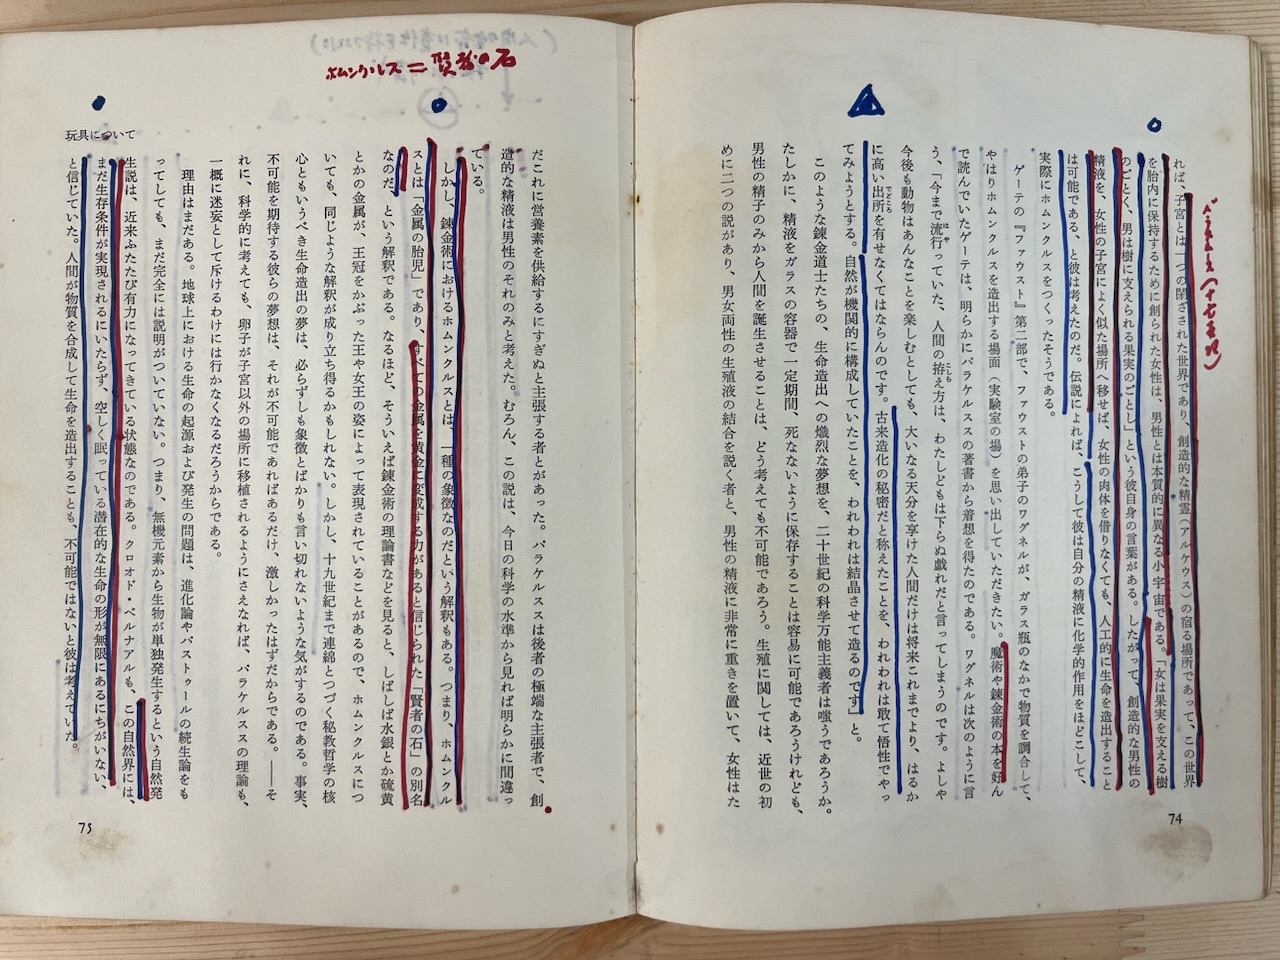 パラケルスス(十六世紀)
れば、子宮とは一つの閉ざされた世界であり、創造的な精霊(アルケウス)の宿る場所であって、この世界
を胎内に保持するために創られた女性は、男性とは本質的に異なる小宇宙である。「女は果実を支える樹
のごとく、男は樹に支えられる果実のごとし」という彼自身の言葉がある。したがって、創造的な男性の
精液を、女性の子宮によく似た場所へ移せば、女性の肉体を借りなくても、人工的に生命を造出すること
は可能である、と彼は考えたのだ。伝説によれば、こうして彼は自分の精液に化学的作用をほどこして、
実際にホムンクルスをつくったそうである。
ゲーテの『ファウスト』第二部で、ファウストの弟子のワグネルが、ガラス瓶のなかで物質を調合して、
やはりホムンクルスを造出する場面(実験室の場)を思い出していただきたい。魔術や錬金術の本を好ん
で読んでいたゲーテは、明らかにパラケルススの著書から着想を得たのである。ワグネルは次のように言
う、「今まで流行っていた、人間の拵え方は、わたしどもは下らぬ戯れだと言ってしまうのです。よしや
今後も動物はあんなことを楽しむとしても、大いなる天分を享けた人間だけは将来これまでより、はるか
に高い出所を有せなくてはならんのです。古来造化の秘密だと称えたことを、われわれは敢て悟性でやっ
てみようとする。自然が機関的に構成していたことを、われわれは結晶させて造るのです」と。
このような錬金道士たちの、生命造出への熾烈な夢想を、二十世紀の科学万能主義者は嗤うであろうか。
たしかに、精液をガラスの容器で一定期間、死なないように保存することは容易に可能であろうけれども、
男性の精子のみから人間を誕生させることは、どう考えても不可能であろう。生殖に関しては、近世の初
めに二つの説があり、男女両性の生殖液の結合を説く者と、男性の精液に非常に重きを置いて、女性はた
74
ホムンクルス=賢者の石
だこれに営養素を供給するにすぎぬと主張する者とがあった。パラケルススは後者の極端な主張者で、創
造的な精液は男性のそれのみと考えた。むろん、この説は、今日の科学の水準から見れば明らかに間違っ
ている。
しかし、錬金術におけるホムンクルスとは、一種の象徴なのだという解釈もある。つまり、ホムンクル
スとは「金属の胎児」であり、すべての金属を黄金に変成する力があると信じられた「賢者の石」の別名
なのだ、という解釈である。なるほど、そういえば錬金術の理論書などを見ると、しばしば水銀とか硫黄
とかの金属が、王冠をかぶった王や女王の姿によって表現されていることがあるので、ホムンクルスにつ
いても、同じような解釈が成り立ち得るかもしれない。しかし、十九世紀まで連綿とつづく秘教哲学の核
心ともいうべき生命造出の夢は、必らずしも象徴とばかりも言い切れないような気がするのである。事実、
不可能を期待する彼らの夢想は、それが不可能であればあるだけ、激しかったはずだからである。——そ
れに、科学的に考えても、卵子が子宮以外の場所に移植されるようにさえなれば、パラケルススの理論も、
一概に迷妄として斥けるわけには行かなくなるだろうからである。
理由はまだある。地球上における生命の起源および発生の問題は、進化論やパストゥールの続生論をも
ってしても、まだ完全には説明がついていない。つまり、無機元素から生物が単独発生するという自然発
生説は、近来ふたたび有力になってきている状態なのである。クロオド・ベルナアルも、この自然界には、
まだ生存条件が実現されるにいたらず、空しく眠っている潜在的な生命の形が無限にあるにちがいない、
と信じていた。人間が物質を合成して生命を造出することも、不可能ではないと彼は考えていた。
玩具について
75